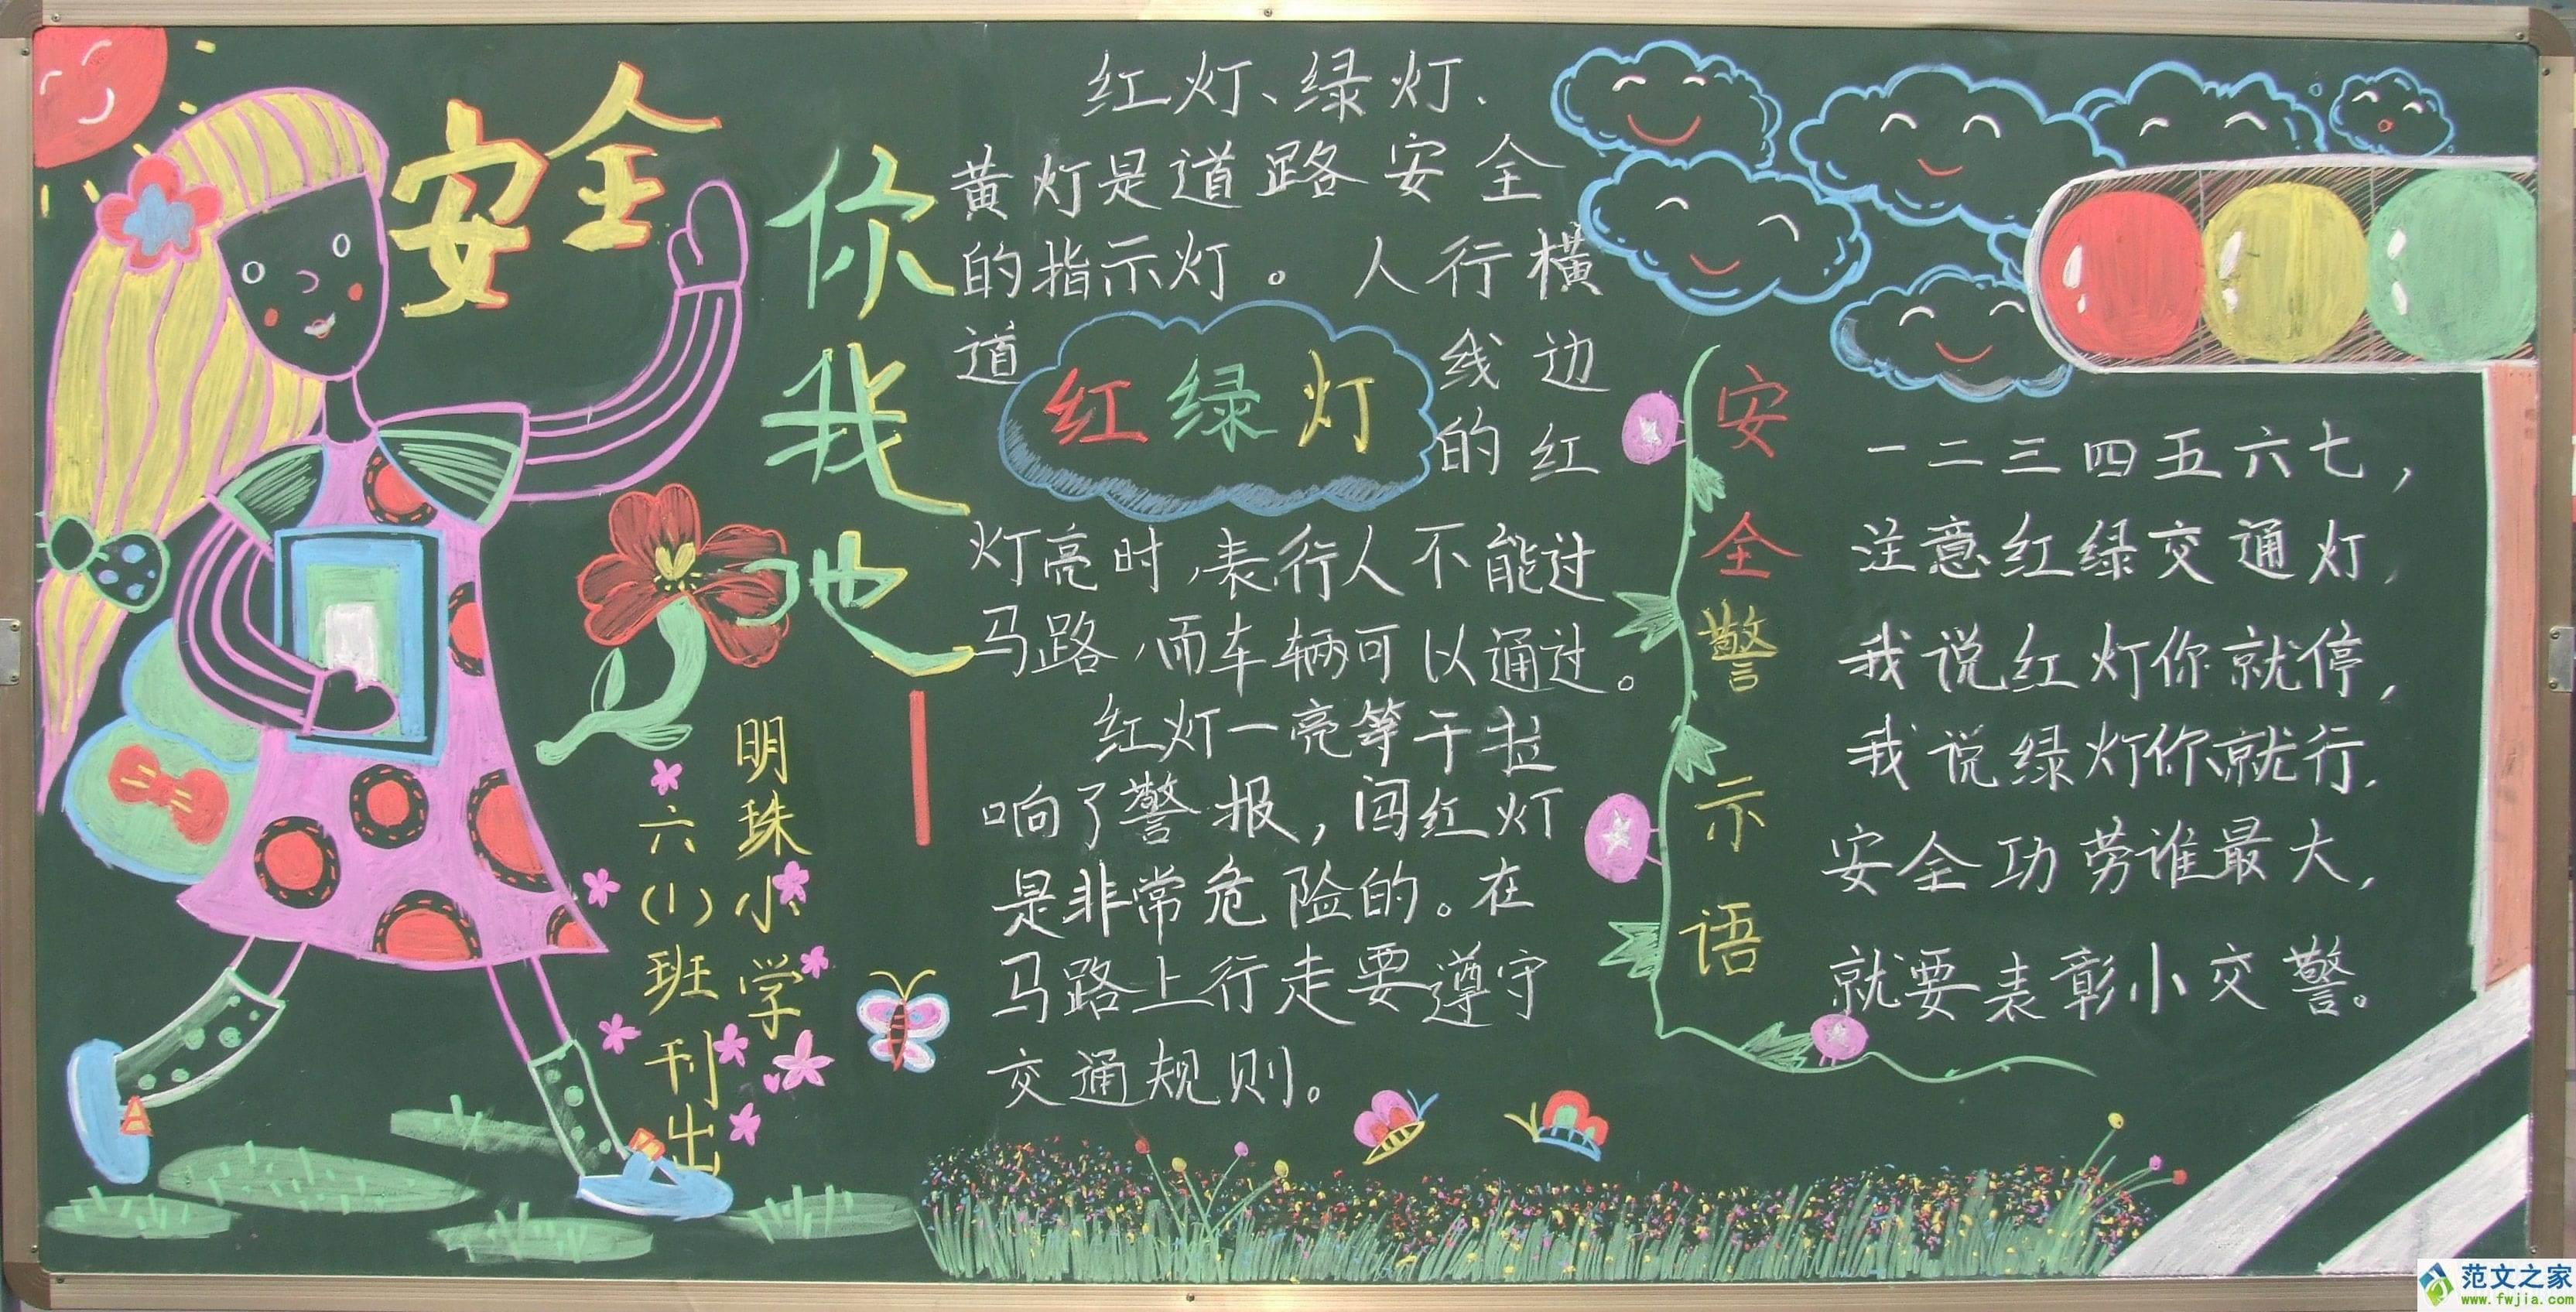 安全
你我他
明珠小学
六(1)班刊出
红绿灯
红灯、绿灯、
黄灯是道路安全
的指示灯。人行横
道线边
的红
灯亮时,表行人不能过
马路,而车辆可以通过。
红灯一亮等于拉
响了警报,闯红灯
是非常危险的。在
马路上行走要遵守
交通规则。
安全警示语
一二三四五六七,
注意红绿交通灯,
我说红灯你就停,
我说绿灯你就行,
安全功劳谁最大,
就要表彰小交警。
范文之家
www.fwjia.com